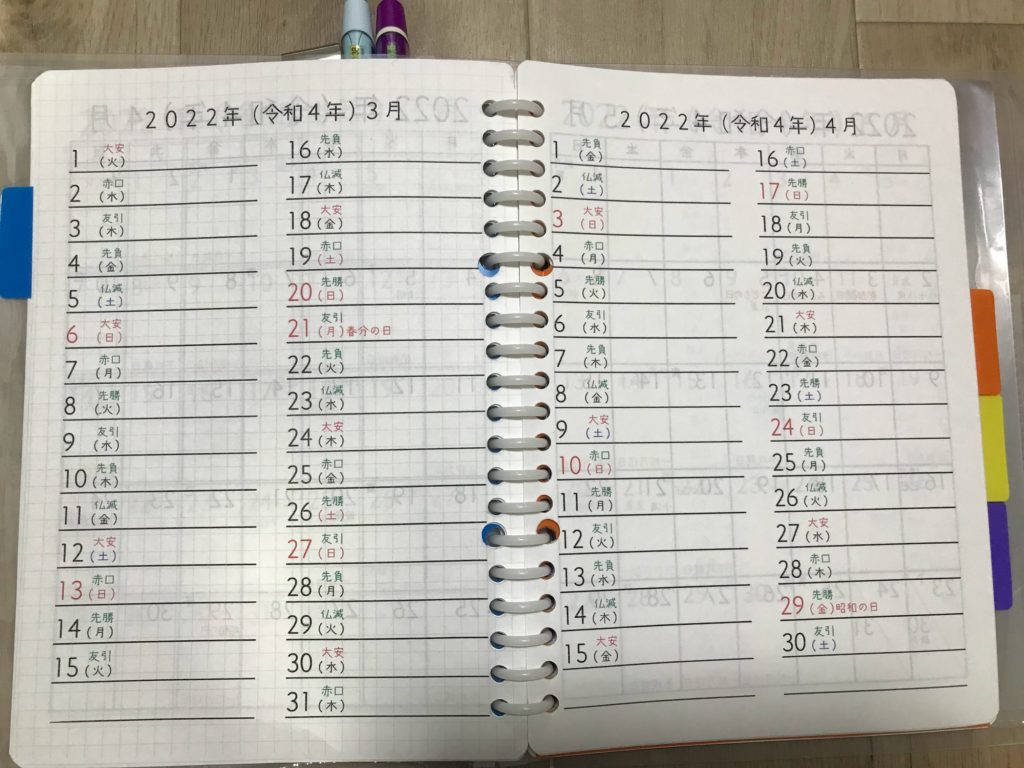 2022年 (令和4年) 3月
1 大安 (火)
2 赤口 (水)
3 友引 (木)
4 先負 (金)
5 仏滅 (土)
6 大安 (日)
7 赤口 (月)
8 先勝 (火)
9 友引 (水)
10 先負 (木)
11 仏滅 (金)
12 大安 (土)
13 赤口 (日)
14 先勝 (月)
15 友引 (火)
16 先負 (水)
17 仏滅 (木)
18 大安 (金)
19 赤口 (土)
20 先勝 (日)
21 友引 (月) 春分の日
22 先負 (火)
23 仏滅 (水)
24 大安 (木)
25 赤口 (金)
26 先勝 (土)
27 友引 (日)
28 先負 (月)
29 仏滅 (火)
30 大安 (水)
31 赤口 (木)
2022年 (令和4年) 4月
1 先負 (金)
2 仏滅 (土)
3 大安 (日)
4 赤口 (月)
5 先負 (火)
6 友引 (水)
7 先負 (木)
8 仏滅 (金)
9 大安 (土)
10 赤口 (日)
11 先勝 (月)
12 友引 (火)
13 先負 (水)
14 仏滅 (木)
15 大安 (金)
16 赤口 (土)
17 先勝 (日)
18 友引 (月)
19 先負 (火)
20 仏滅 (水)
21 大安 (木)
22 赤口 (金)
23 先勝 (土)
24 友引 (日)
25 先負 (月)
26 仏滅 (火)
27 大安 (水)
28 赤口 (木)
29 先勝 (金) 昭和の日
30 友引 (土)